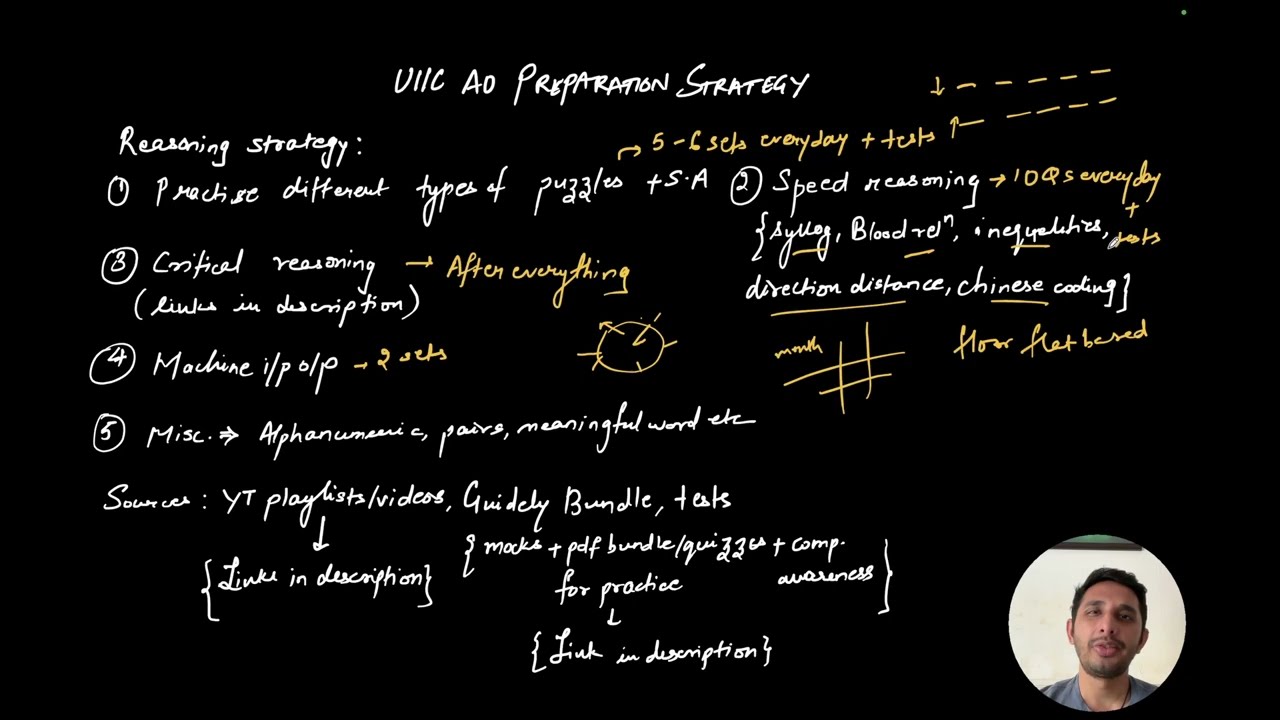 UIIC AO PREPARATION STRATEGY
Reasoning strategy:
→ 5-6 sets everyday + tests
① Practise different types of puzzles + S.A
② Speed reasoning → 10Qs everyday
+
tests
{Syllog, Blood relⁿ, inequalities,
direction distance, chinese coding}
③ Critical reasoning → After everything
(links in description)
month
floor flat based
④ Machine i/p o/p → 2 sets
⑤ Misc. ⇒ Alphanumeric, pairs, meaningful word etc
Sources: YT playlists/videos, Guidely Bundle, tests
↓
{Links in description}
{mocks + pdf bundle/quizzes + comp.
for practice awareness}
↓
{Link in description}